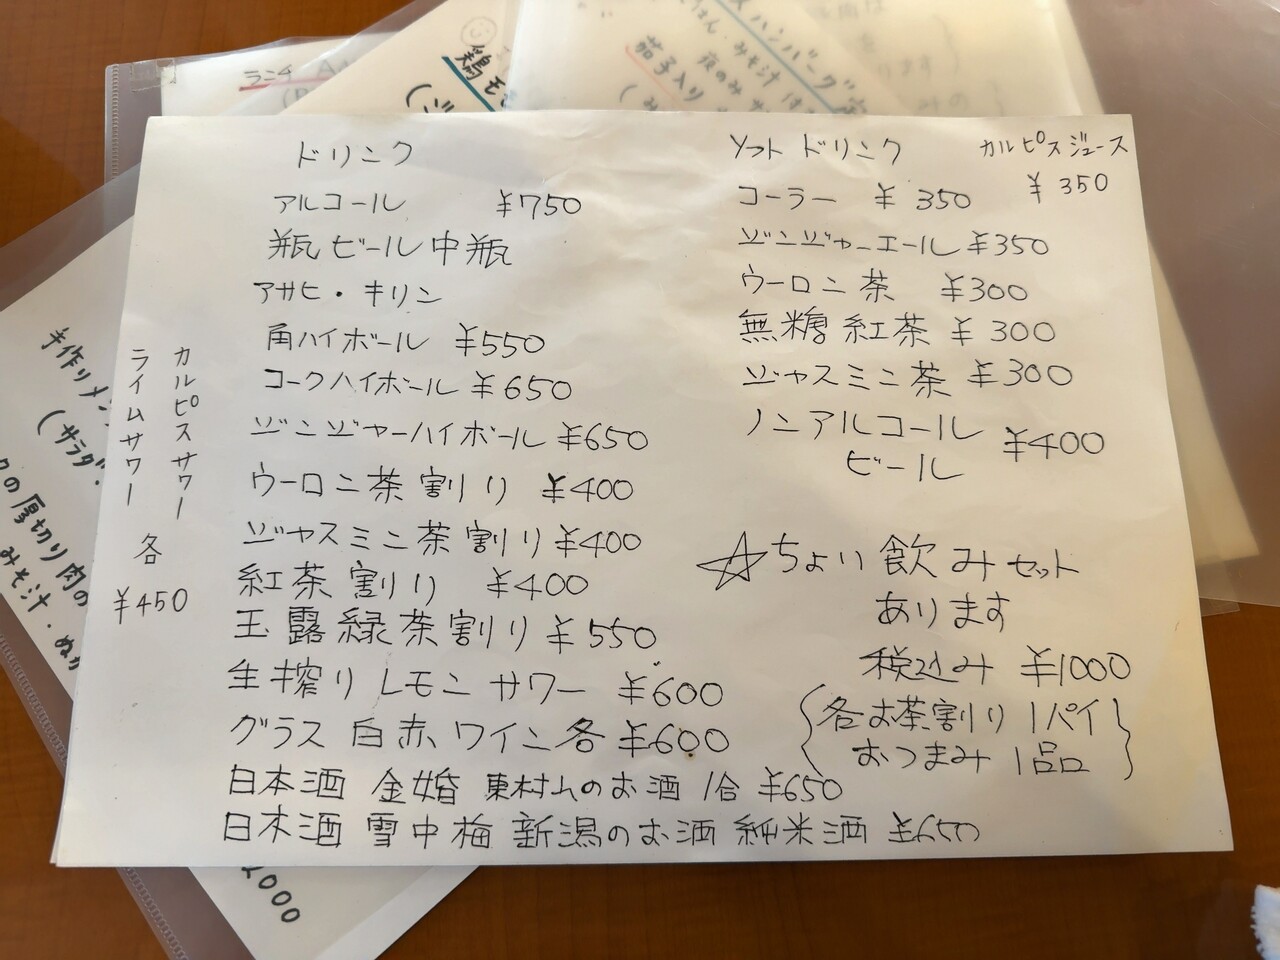 ドリンク
アルコール ¥750
瓶ビール中瓶
アサヒ・キリン
角ハイボール ¥550
コークハイボール ¥650
ジンジャーハイボール ¥650
ウーロン茶割り ¥400
ジャスミン茶割り ¥400
紅茶割り ¥400
玉露緑茶割り ¥550
生搾りレモンサワー ¥600
グラス白赤ワイン各 ¥600
日本酒 金婚 東村山のお酒 1合 ¥650
日本酒 雪中梅 新潟のお酒 純米酒 ¥650
カルピスサワー
ライムサワー
各
¥450
ソフトドリンク
コーラー ¥350
ジンジャーエール ¥350
ウーロン茶 ¥300
無糖紅茶 ¥300
ジャスミン茶 ¥300
ノンアルコール
ビール ¥400
カルピスジュース
¥350
☆ちょい飲みセット
あります
税込み ¥1000
{各お茶割り1パイ
おつまみ1品}
ランチ
鶏モ
ハンバーグ
みそ汁
茄子入り
手作りメン
(サラダ・
の厚切り肉の
みそ汁・ぬか
2000